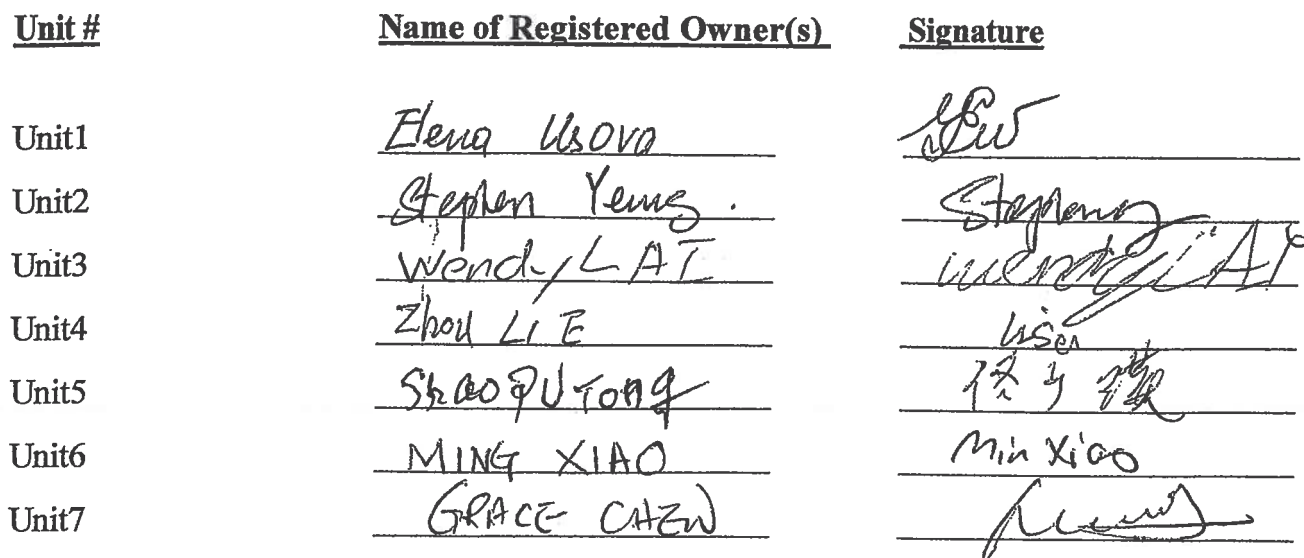 Unit # Name of Registered Owner(s) Signature
Unit1 Elena Usova
Unit2 Stephen Yeung.
Unit3 Wendy LAI wendy LAI
Unit4 Zhou LI E
Unit5 ShaoQU Tong
Unit6 MING XIAO Min Xiao
Unit7 GRACE CHEN